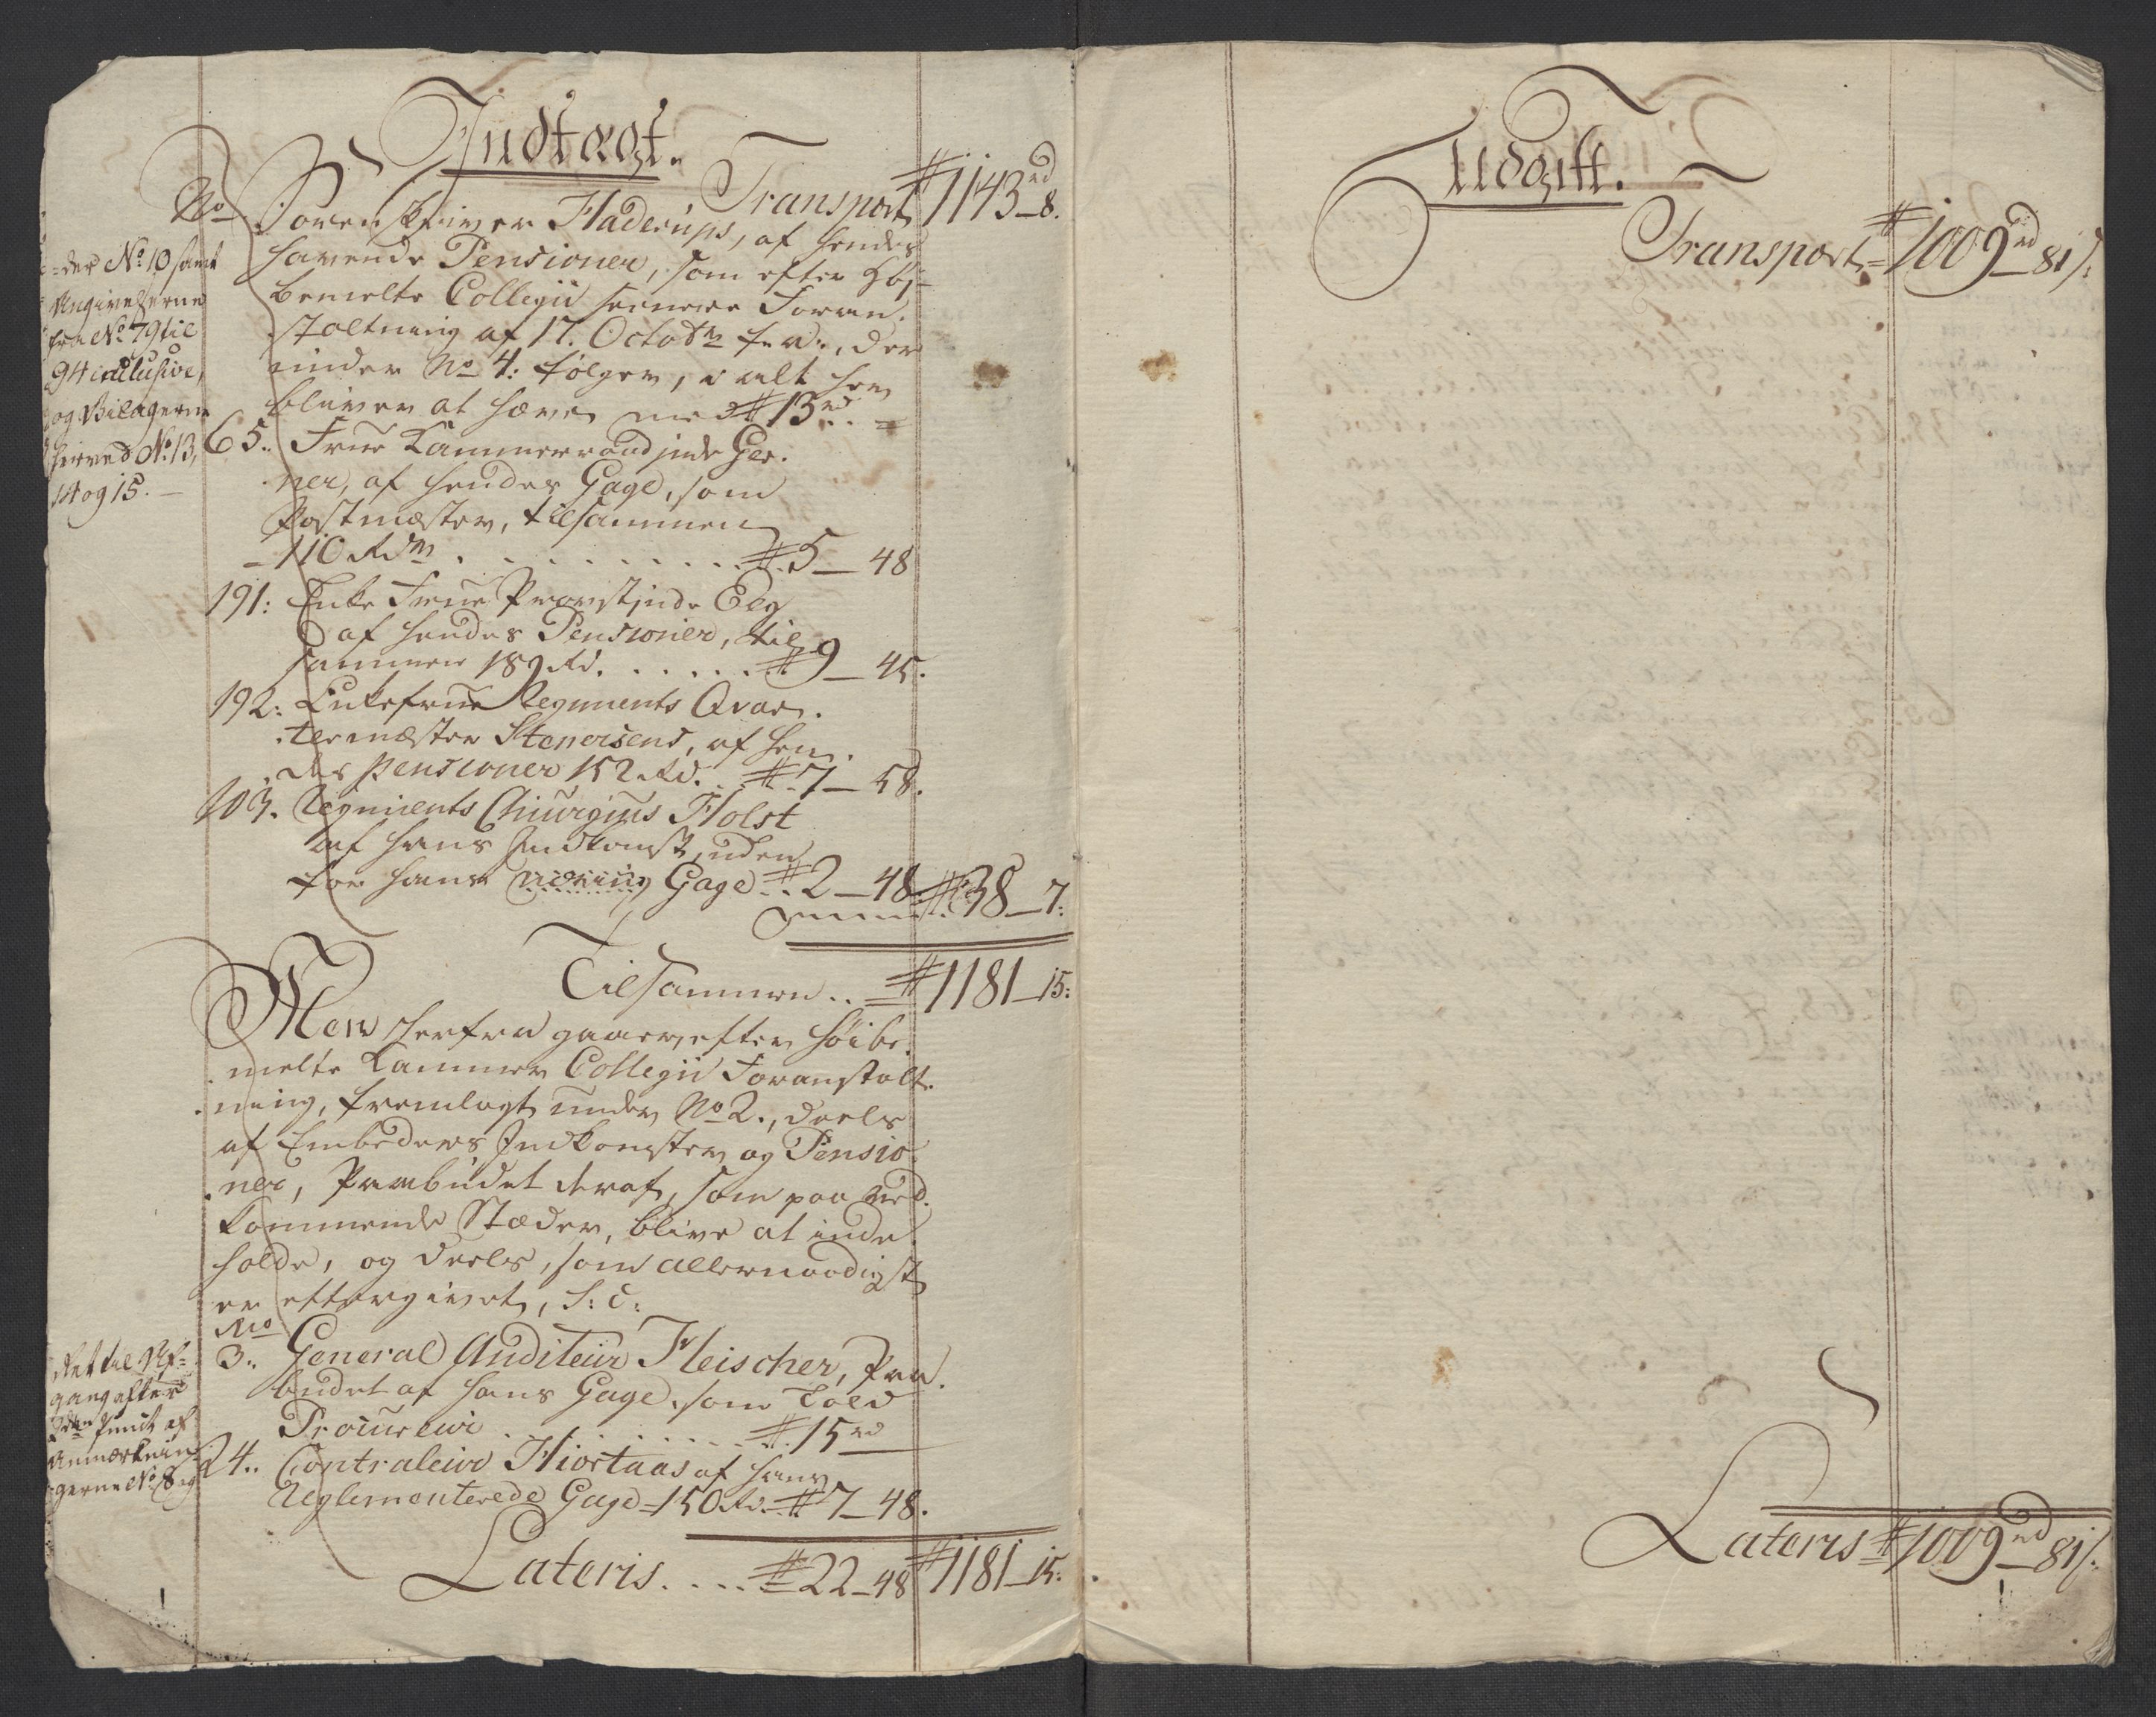 Indtægt.
Transport # 1143 rd_8.
No
Sorenskriver Haderups, af hendes
havende Pensioner, som efter Høj-
bemelte Collegii seenere Foran-
staltning af 17. Octobr f. A., der
under No 4: følger, i alt her
bliver at hæve med # 13 rd.. =
65.. Frue Kammerraadinde Ger-
ner, af hendes Gage, som
Postmæster, tilsammen
110 Rdr . . . . . . . . . #. 5_48
191: Enke Frue Provstinde Elg
af hendes Pensioner, til-
sammen 189 Rd. . . . . . #. 9_45.
192: Enkefrue Regiments Qvar-
termæster Stenersens, af hen-
des Pensioner 152 Rd. . #. 7_58.
203. Regiments Chirurgus Holst
af hans Indkomst, uden
for hans Gage #.. 2_48 # 38_7:
Tilsammen.. = # 1181_15:
Men herfra gaaer, efter høibe-
melte Kammer Collegii Foranstalt-
ning, fremlagt under No 2., deels
af Embeders Indkomster og Pensio-
ner, Paabudet deraf, som paa Ved-
kommende Stæder, blive at inde-
holde, og deels, som allernaadigst
er eftergivet, S: C:
No
3.. General Auditeur Fleischer, Paa-
budet af hans Gage, som Told
Procureur . . . . . . . #. 15 rd
24.. Contraleur Hiortaas af hans
Reglementerede Gage = 150 Rd. #. 7_48.
Lateris. . . . # 22_48 # 1181_15:
der No 10 samt
Angivelserne
fra No 79 til
94 inclusive,
og Bilagerne
herved No 13,
14 og 15. _
til Af-
gang efter
Punct af
Anmærknin-
gerne No 8
Udgift.
Transport = # 1009 rd_81/:
Lateris # 1009 rd_81/: